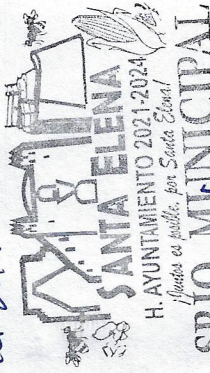 SANTA ELENA
H. AYUNTAMIENTO 2021-2024
¡Juntos es posible, por Santa Elena!
SRIO. MUNICIPAL